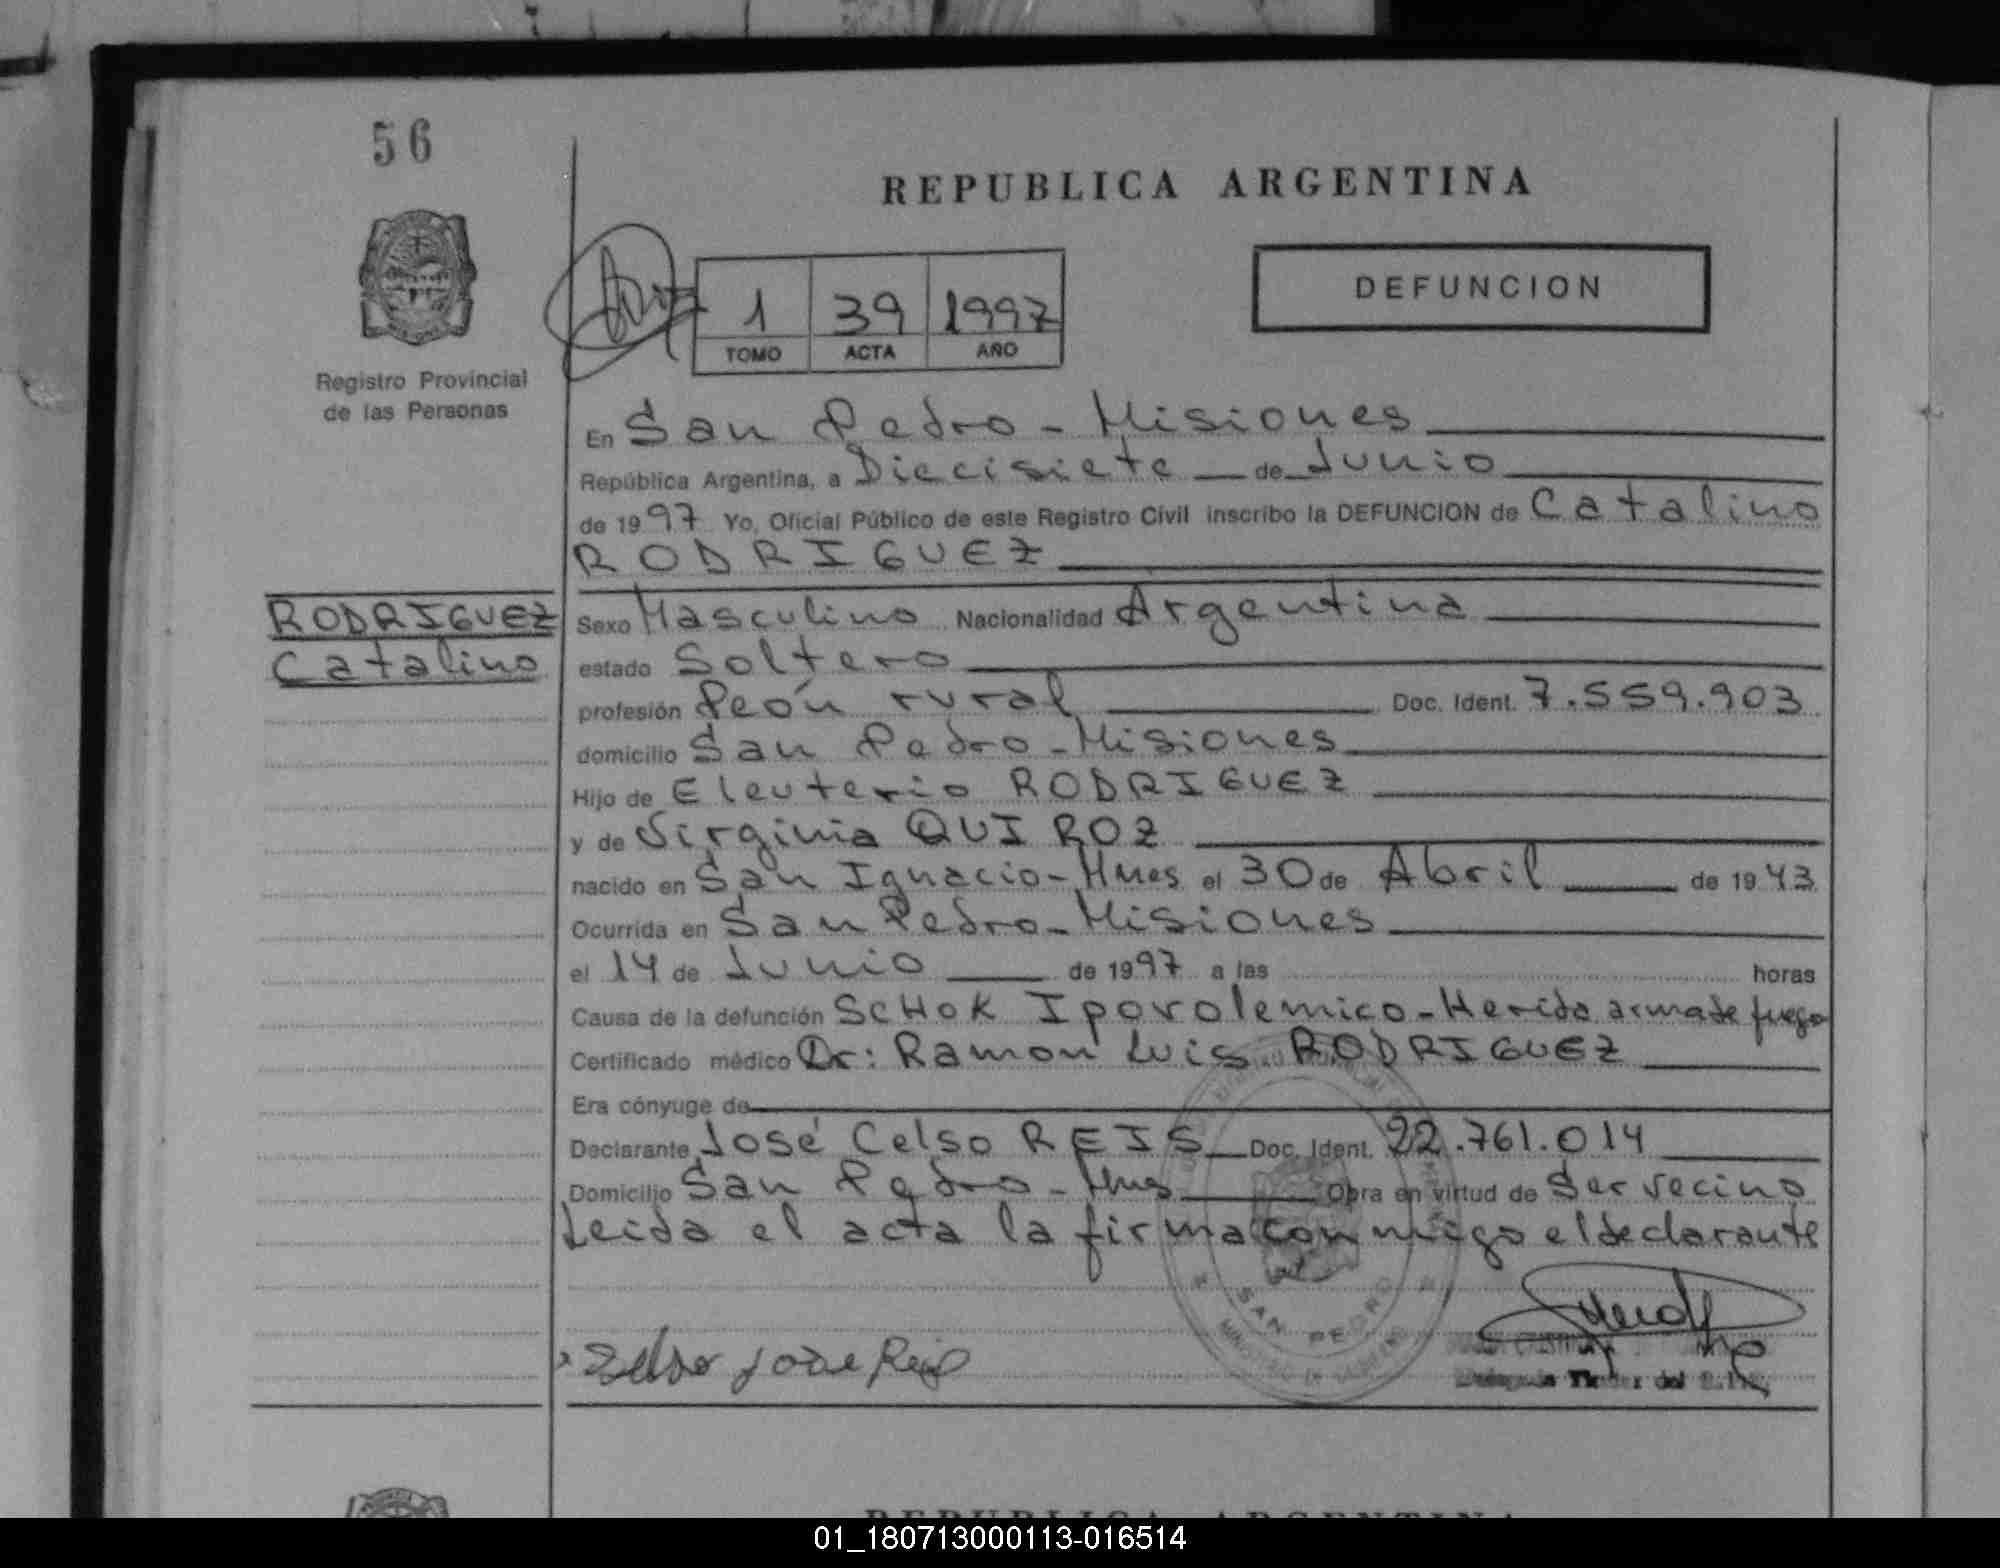 56
REPUBLICA ARGENTINA
1 39 1997
TOMO ACTA AÑO
DEFUNCION
Registro Provincial
de las Personas
En San Pedro - Misiones
República Argentina, a Diecisiete de Junio
de 1997 Yo, Oficial Público de este Registro Civil inscribo la DEFUNCION de Catalino
RODRIGUEZ
RODRIGUEZ
Catalino
Sexo Masculino Nacionalidad Argentina
estado Soltero
profesión Peón rural Doc. Ident. 7.559.903
domicilio San Pedro - Misiones
Hijo de Eleuterio RODRIGUEZ
y de Virginia QUIROZ
nacido en San Ignacio - Mnes el 30 de Abril de 1943
Ocurrida en San Pedro - Misiones
el 14 de Junio de 1997 a las horas
Causa de la defunción SCHOK Ipovolemico - Herida arma de fuego
Certificado médico Dr: Ramon Luis RODRIGUEZ
Era cónyuge de
Declarante José Celso REIS Doc. Ident. 22.761.014
Domicilio San Pedro - Mnes Obra en virtud de Ser vecino
Leida el acta la firma conmigo el declarante
SAN PEDRO
MINISTERIO DE GOBIERNO
Selso José Reis
REPUBLICA ARGENTINA
01_180713000113-016514